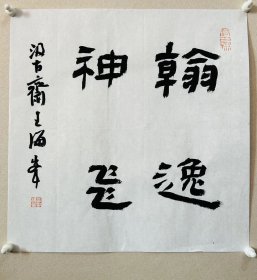 翰逸
神飞
汲古斋王海峰